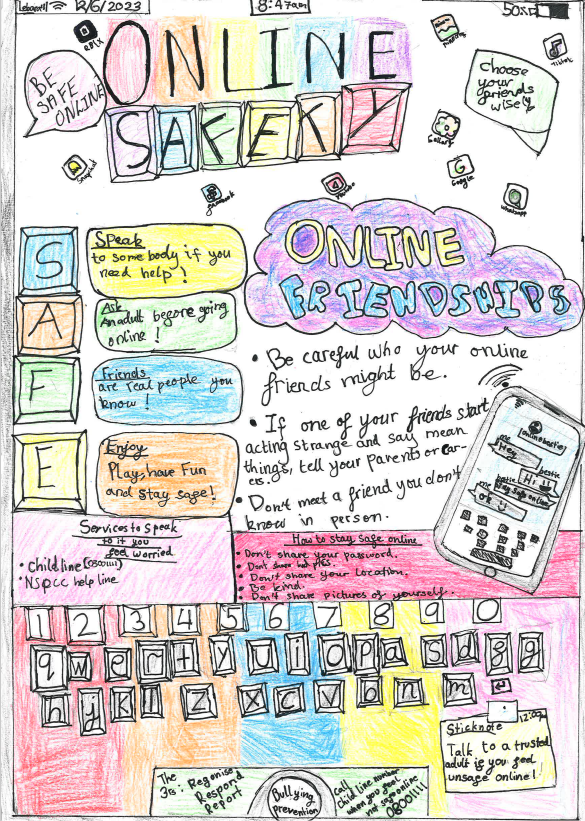 12/6/2023
8:47am
50%
ONLINE
SAFETY
BE
SAFE
ONLINE!
Choose
your
friends
wisely
TikTok
Snapchat
Gallery
Google
Whatsapp
S
A
F
E
Speak
to some body if you
need help!
Ask
An adult before going
online!
Friends
are real people you
know!
Enjoy
Play, have Fun
and stay safe!
ONLINE
FRIENDSHIPS
• Be careful who your online
friends might be.
• If one of your friends start
acting strange and say mean
things, tell your parents or car-
ers.
• Don't meet a friend you don't
know in person.
me
Hey
bestie
Hi
me
OK
bestie
Stay safe online!
Services to speak
to if you
feel worried
• Child line (08001111)
• NSPCC help line
How to stay safe online
• Don't share your password.
• Don't share your location.
• Be kind.
• Don't share pictures of yourself.
1 2 3 4 5 6 7 8 9 0
q w e r t y u i o p a s d f g
h j k l z x c v b n m ↵
12:00pm
Sticknote
Talk to a trusted
adult if you feel
unsafe online!
The
3Rs: Regonise
Respond
Report
Bullying
prevention
Call
child line number
when you feel
not safe online
08001111